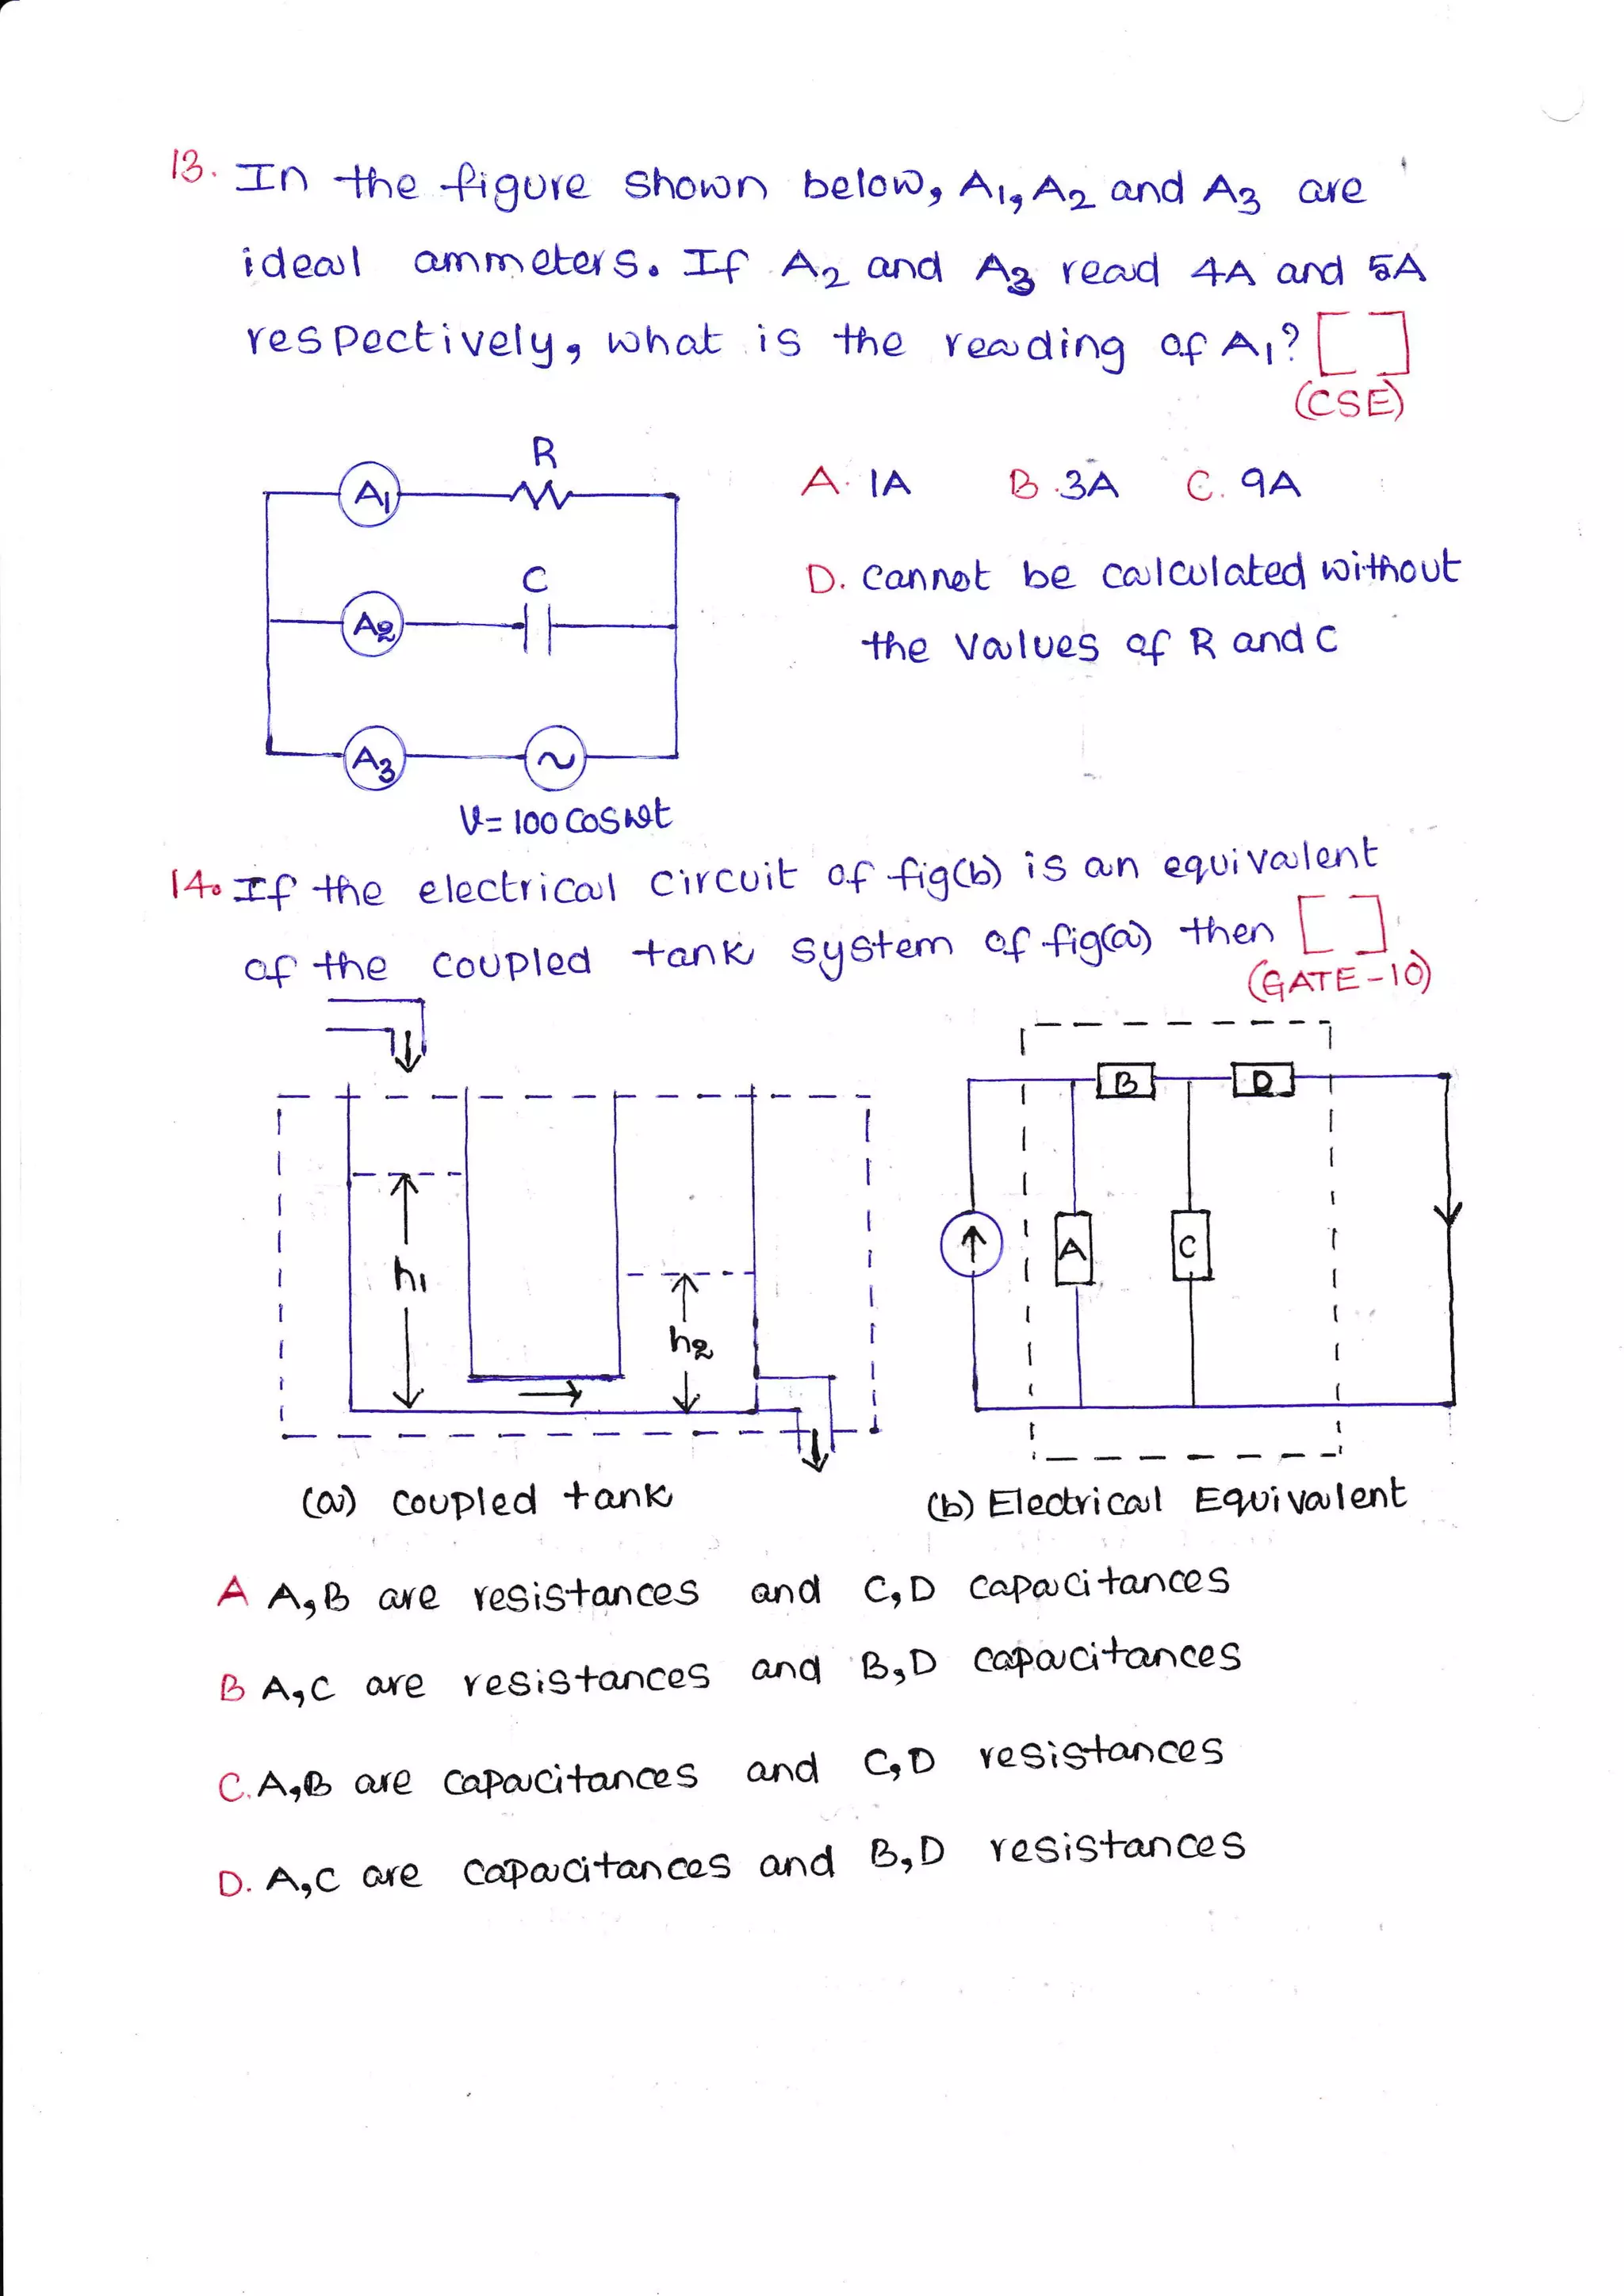 13. In the figure shown below, A1, A2 and A3 are
ideal ammeters. If A2 and A3 read 4A and 5A
respectively, what is the reading of A1? [ ]
(CSE)
R
A1
A. 1A B. 3A C. 9A
C
D. cannot be calculated without
A2
the values of R and C
A3
~
V= 100 cosωt
14. If the electrical circuit of fig(b) is an equivalent
of the coupled tank system of fig(a) then [ ]
(GATE-10)
B D
h1
A C
h2
(a) coupled tank
(b) Electrical Equivalent
A A,B are resistances and C,D capacitances
B A,C are resistances and B,D capacitances
C. A,B are capacitances and C,D resistances
D. A,C are capacitances and B,D resistances